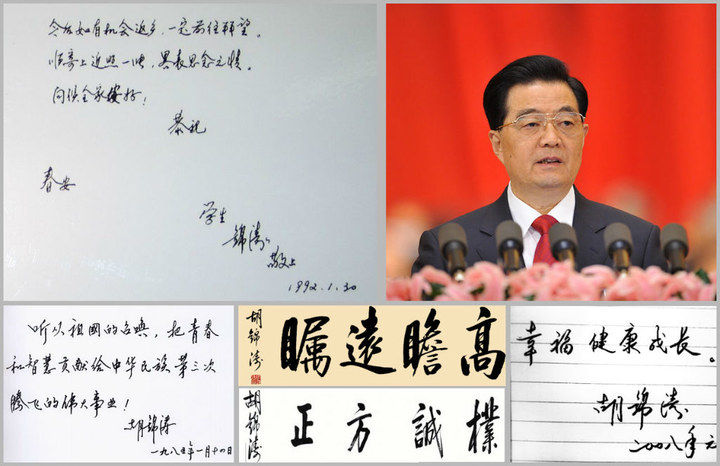 今后如有机会返乡，一定前往望。
顺寄上近照一帧，畧表思念之情。
问候全家安好！
恭祝
春安
学生
锦涛
敬上
1992.1.30
听从祖国的召唤，把青春
和智慧贡献给中华民族第三次
腾飞的伟大事业！
胡锦涛
一九八五年一月十四日
高瞻遠矚
胡錦濤
樸誠方正
胡錦濤
幸福健康成长。
胡锦涛
二〇〇八年元